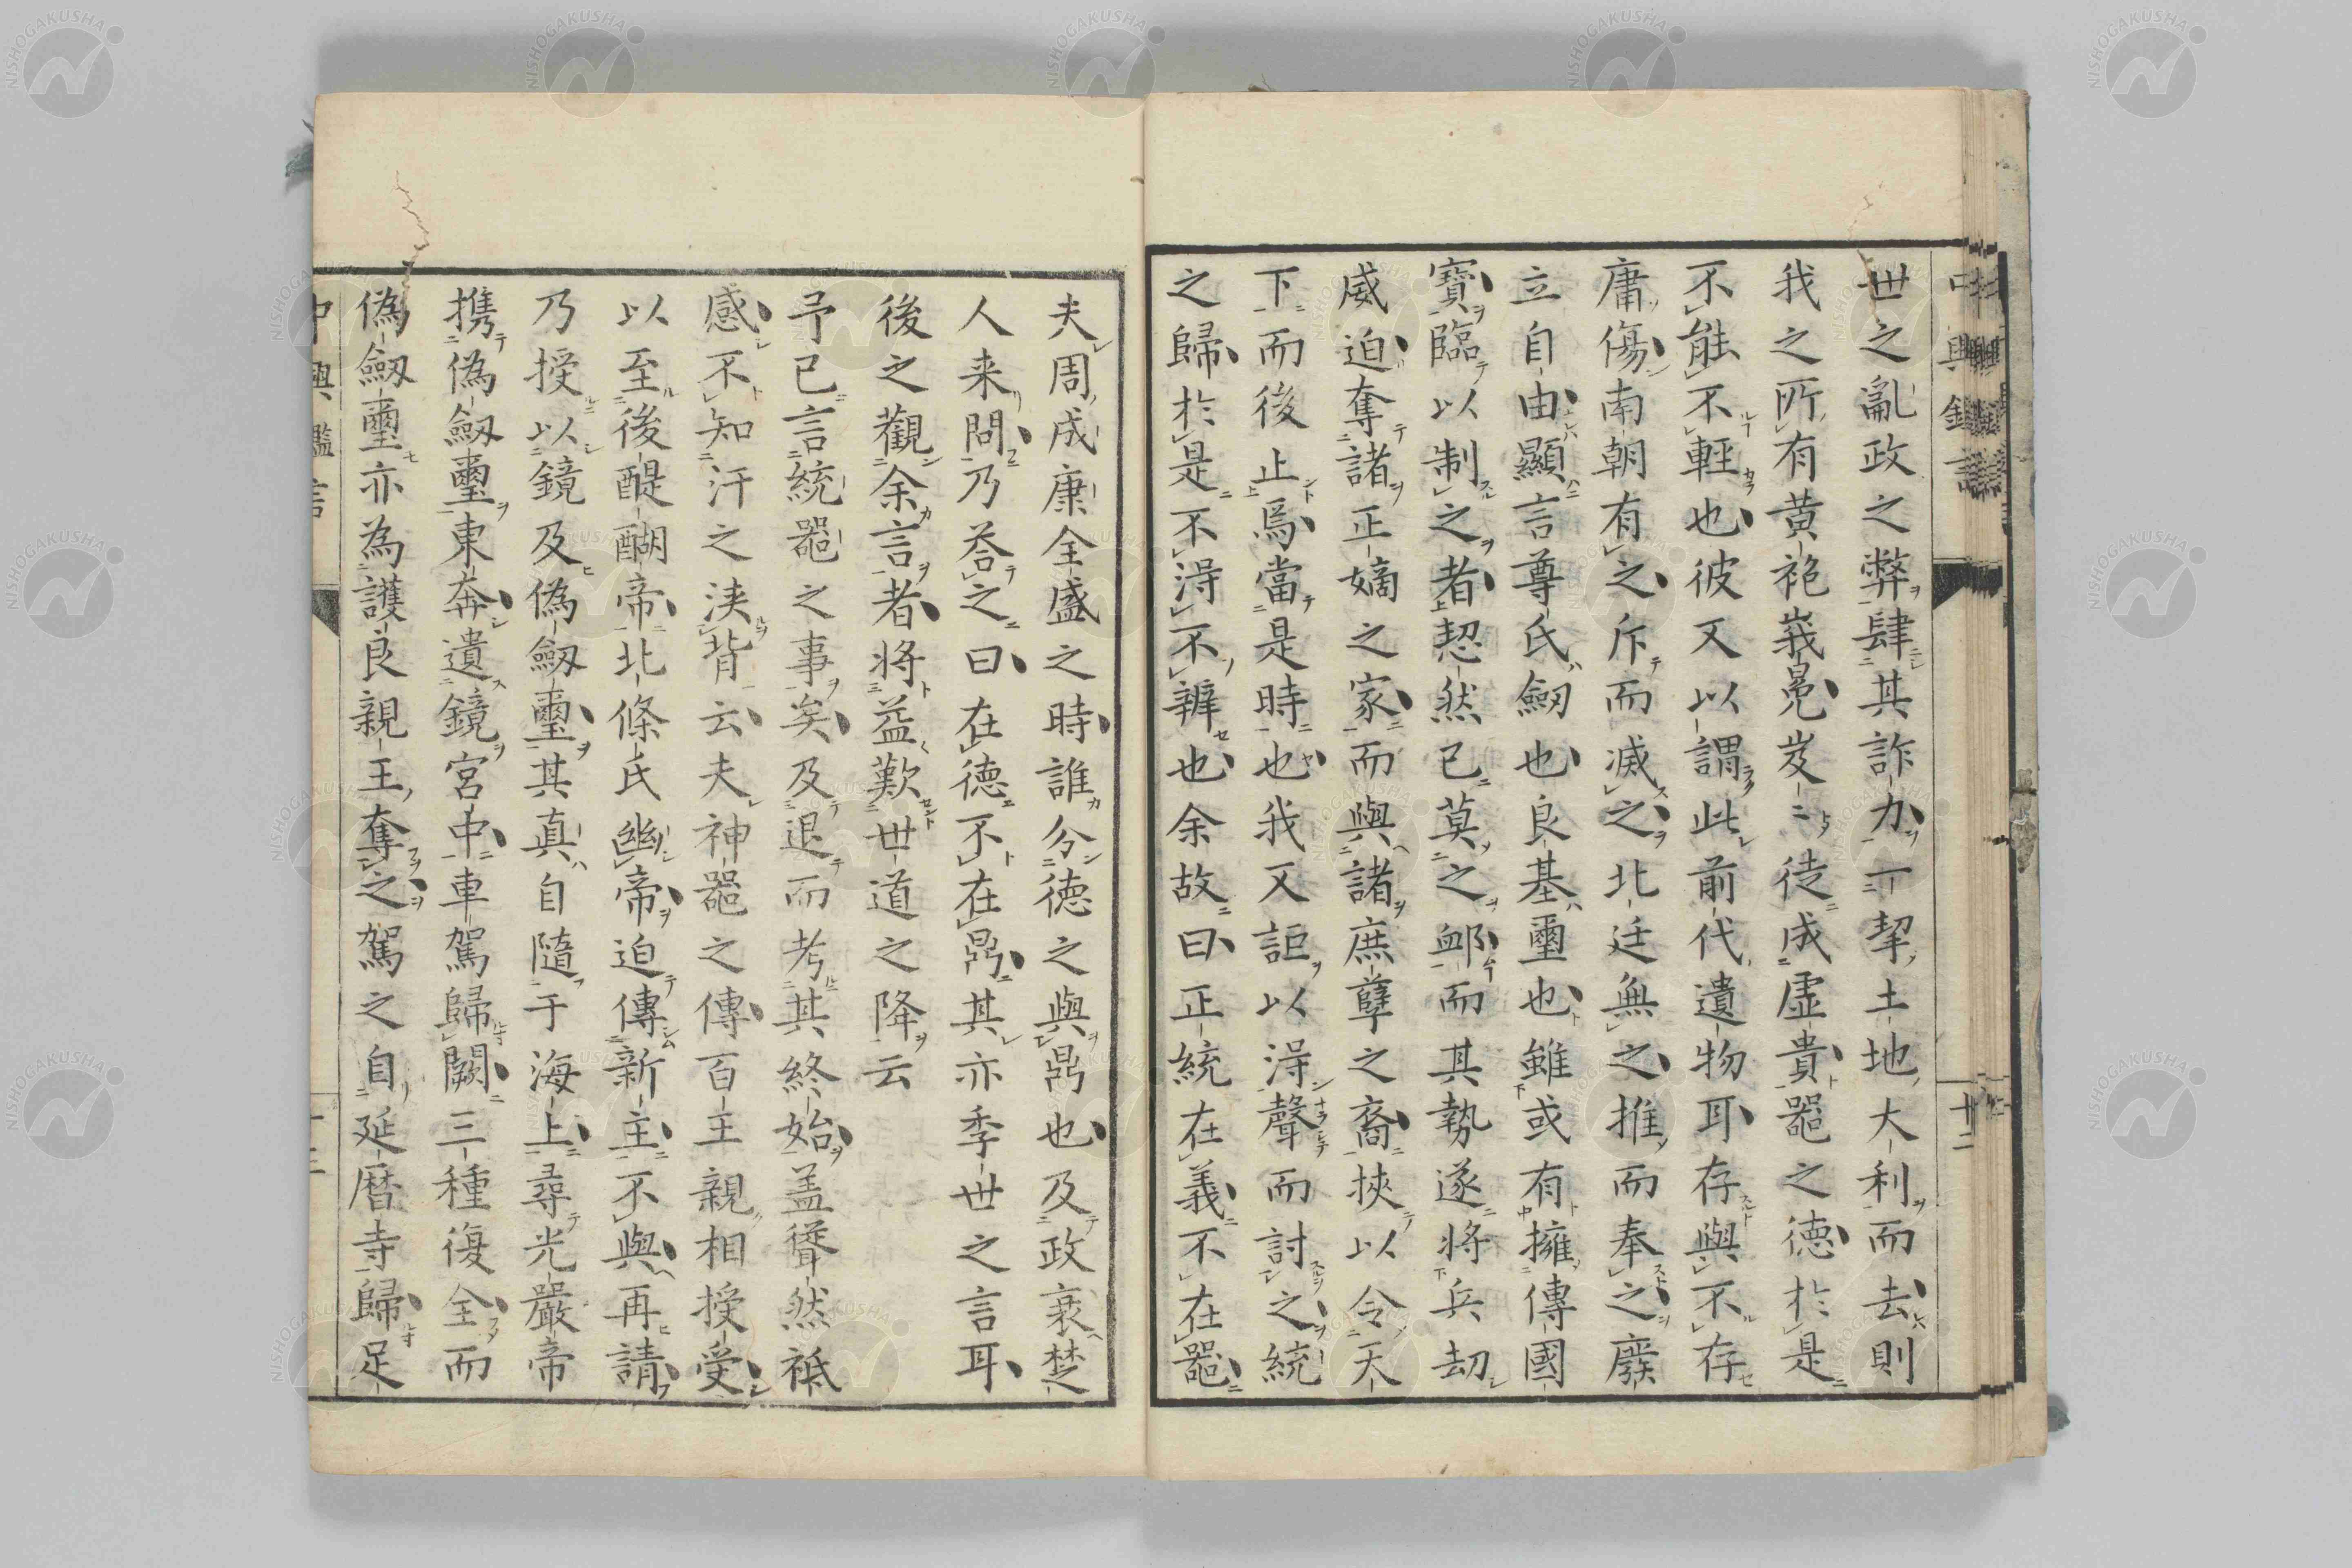 世之亂政之弊肆其詐力一挈土地大利而去則
我之所有黃袍峩冕岌〻徒成虛貴噐之德於是
不能不輕也彼又以謂此前代遺物耳存與不存
庸傷南朝有之斥而滅之北廷無之推而奉之廢
立自由顯言尊氏劔也良基璽也雖或有擁傳國
寶臨以制之者恝然已莫之䘏而其勢遂將兵劫
威迫奪諸正嫡之家而與諸庶孽之裔挾以令天
下而後止焉當是時也我又詎以淂聲而討之統
之歸於是不淂不辨也余故曰正統在義不在噐
夫周成康全盛之時誰分德之與鼎也及政衰楚
人来問乃荅之曰在德不在鼎其亦季世之言耳
後之觀余言者將益歎世道之降云
予已言統噐之事矣及退而考其終始盖聳然祗
感不知汗之浹背云夫神噐之傳百王親相授受
以至後醍醐帝北條氏幽帝迫傳新主不與再請
乃授以鏡及偽劔璽其真自隨于海上尋光嚴帝
携偽劔璽東奔遺鏡宮中車駕歸闕三種復全而
偽劔璽亦為護良親王奪之駕之自延暦寺歸足
中興鑑言
十二